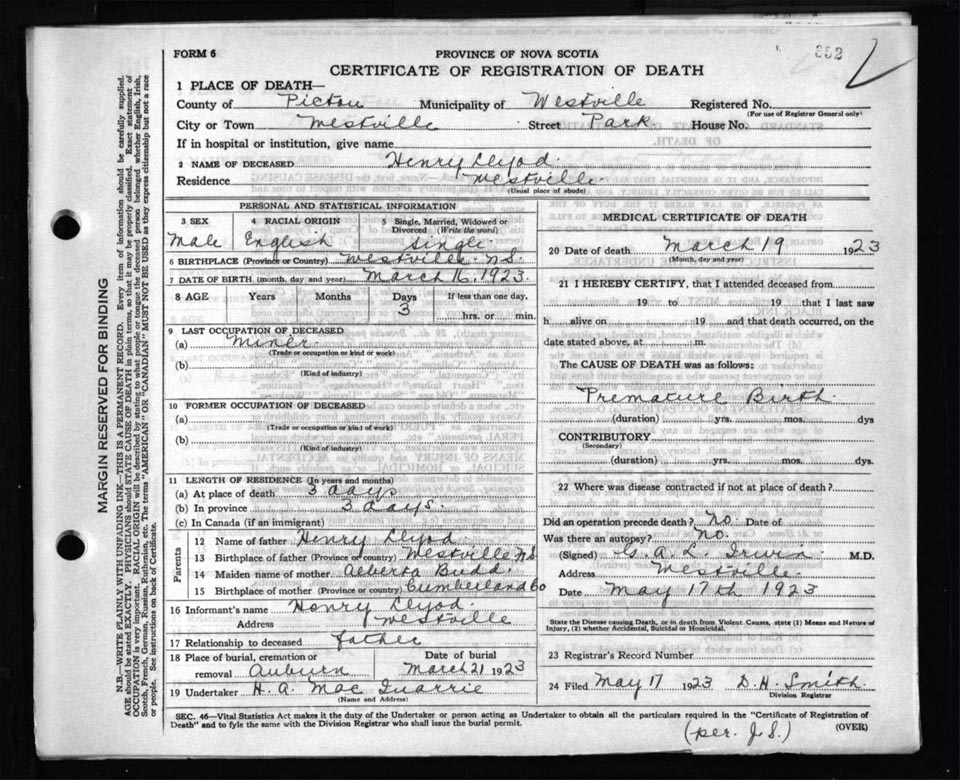 FORM 6
PROVINCE OF NOVA SCOTIA
352
CERTIFICATE OF REGISTRATION OF DEATH
1 PLACE OF DEATH—
County of Pictou Municipality of Westville Registered No.
(For use of Registrar General only)
City or Town Westville Street Park House No.
If in hospital or institution, give name
2 NAME OF DECEASED Henry Llyod.
Residence Westville.
(Usual place of abode)
PERSONAL AND STATISTICAL INFORMATION
3 SEX 4 RACIAL ORIGIN 5 Single, Married, Widowed or Divorced (Write the word)
Male English single
6 BIRTHPLACE (Province or Country) Westville. N.S.
7 DATE OF BIRTH (month, day and year) March 16. 1923.
8 AGE Years Months Days If less than one day,
3 hrs. or min.
9 LAST OCCUPATION OF DECEASED
(a) Miner
(Trade or occupation or kind or work)
(b)
(Kind of industry)
10 FORMER OCCUPATION OF DECEASED
(a)
(Trade or occupation or kind of work)
(b)
(Kind of industry)
11 LENGTH OF RESIDENCE (In years and months)
(a) At place of death 3 days
(b) In province 3 days.
(c) In Canada (if an immigrant)
Parents
12 Name of father Henry Llyod
13 Birthplace of father (Province or country) Westville N.S.
14 Maiden name of mother Alberta Budd.
15 Birthplace of mother (Province or country) Cumberland Co
16 Informant's name Henry Llyod.
Address Westville
17 Relationship to deceased father
18 Place of burial, cremation or removal Auburn Date of burial March 21 1923
19 Undertaker H. A. Mac Quarrie
(Name and Address)
MEDICAL CERTIFICATE OF DEATH
20 Date of death March 19 1923
(Month, day and year)
21 I HEREBY CERTIFY, that I attended deceased from
19 to 19 that I last saw
h alive on 19 and that death occurred, on
date stated above, at m.
The CAUSE OF DEATH was as follows:
Premature Birth.
(duration) yrs. mos. dys
CONTRIBUTORY
(Secondary)
(duration) yrs. mos. dys.
22 Where was disease contracted if not at place of death?
Did an operation precede death? No. Date of
Was there an autopsy? No.
(Signed) G. A. L. Irwin M.D.
Address Westville.
Date May 17th 1923
State the Disease causing Death, or in death from Violent Causes, state (1) Means and Nature of
Injury, (2) whether Accidental, Suicidal or Homicidal.
23 Registrar's Record Number
24 Filed May 17 1923 D. H. Smith.
Division Registrar
(per. J. S.)
SEC. 46—Vital Statistics Act makes it the duty of the Undertaker or person acting as Undertaker to obtain all the particulars required in the "Certificate of Registration of
Death" and to fyle the same with the Division Registrar who shall issue the burial permit.
(OVER)
MARGIN RESERVED FOR BINDING
N.B.—WRITE PLAINLY WITH UNFADING INK—THIS IS A PERMANENT RECORD. Every item of information should be carefully supplied.
AGE should be stated EXACTLY. PHYSICIANS should STATE CAUSE OF DEATH in plain terms, so that it may be properly classified. Exact statement of
OCCUPATION is very important. RACIAL ORIGIN will be described by stating to what people or tongue the deceased person belonged whether English, Irish,
Scotch, French, German, Russian, Ruthenian, etc. The terms "AMERICAN" OR "CANADIAN" MUST NOT BE USED as they express citizenship but not a race
or people. See instructions on back of Certificate.